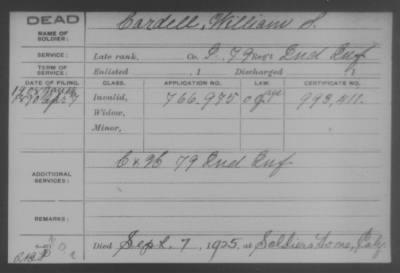 DEAD
NAME OF SOLDIER: Cardell, William S.
SERVICE: Late rank, Co. I, 79 Reg't Ind Inf
TERM OF SERVICE: Enlisted , 1 Discharged , 1
DATE OF FILING. CLASS. APPLICATION NO. LAW. CERTIFICATE NO.
Invalid, 766,975 age 993,411.
Widow,
Minor,
ADDITIONAL SERVICES: 79 Ind Inf
REMARKS:
Died Sept. 7, 1925, at Soldiers Home, Cal.